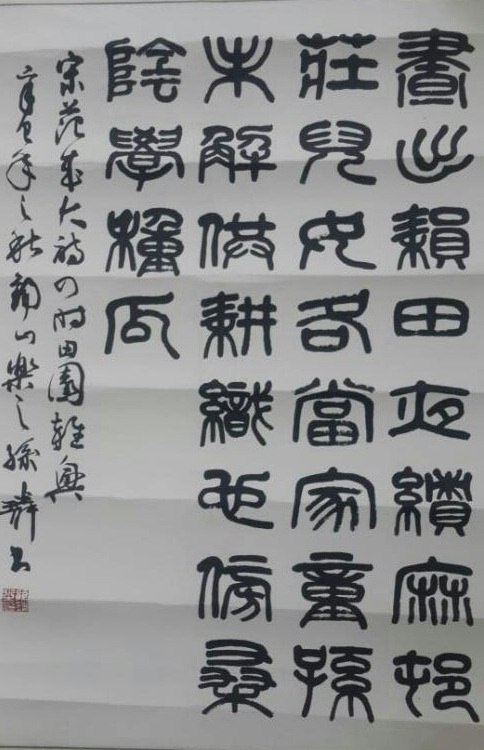 晝出耘田夜績麻邨
莊兒女各當家童孫
未解供耕織也傍桑
陰學種瓜
宋范成大詩四时田園雜興
辛丑年之秋山樂之孫書